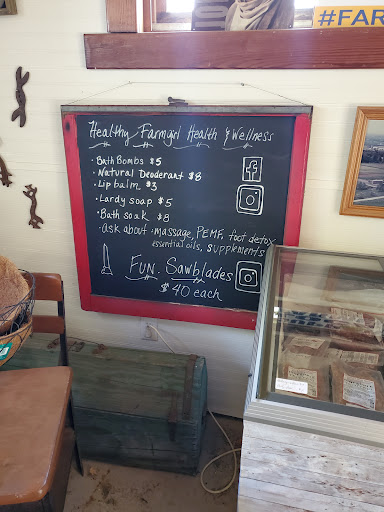 #FAR
Healthy Farmgirl Health & Wellness
• Bath Bombs $5
• Natural Deoderant $8
• Lip balm $3
• Lardy soap $5
• Bath soak $8
• ask about : massage, PEMF, foot detox
essential oils, supplements
FUN. Sawblades
$40 each